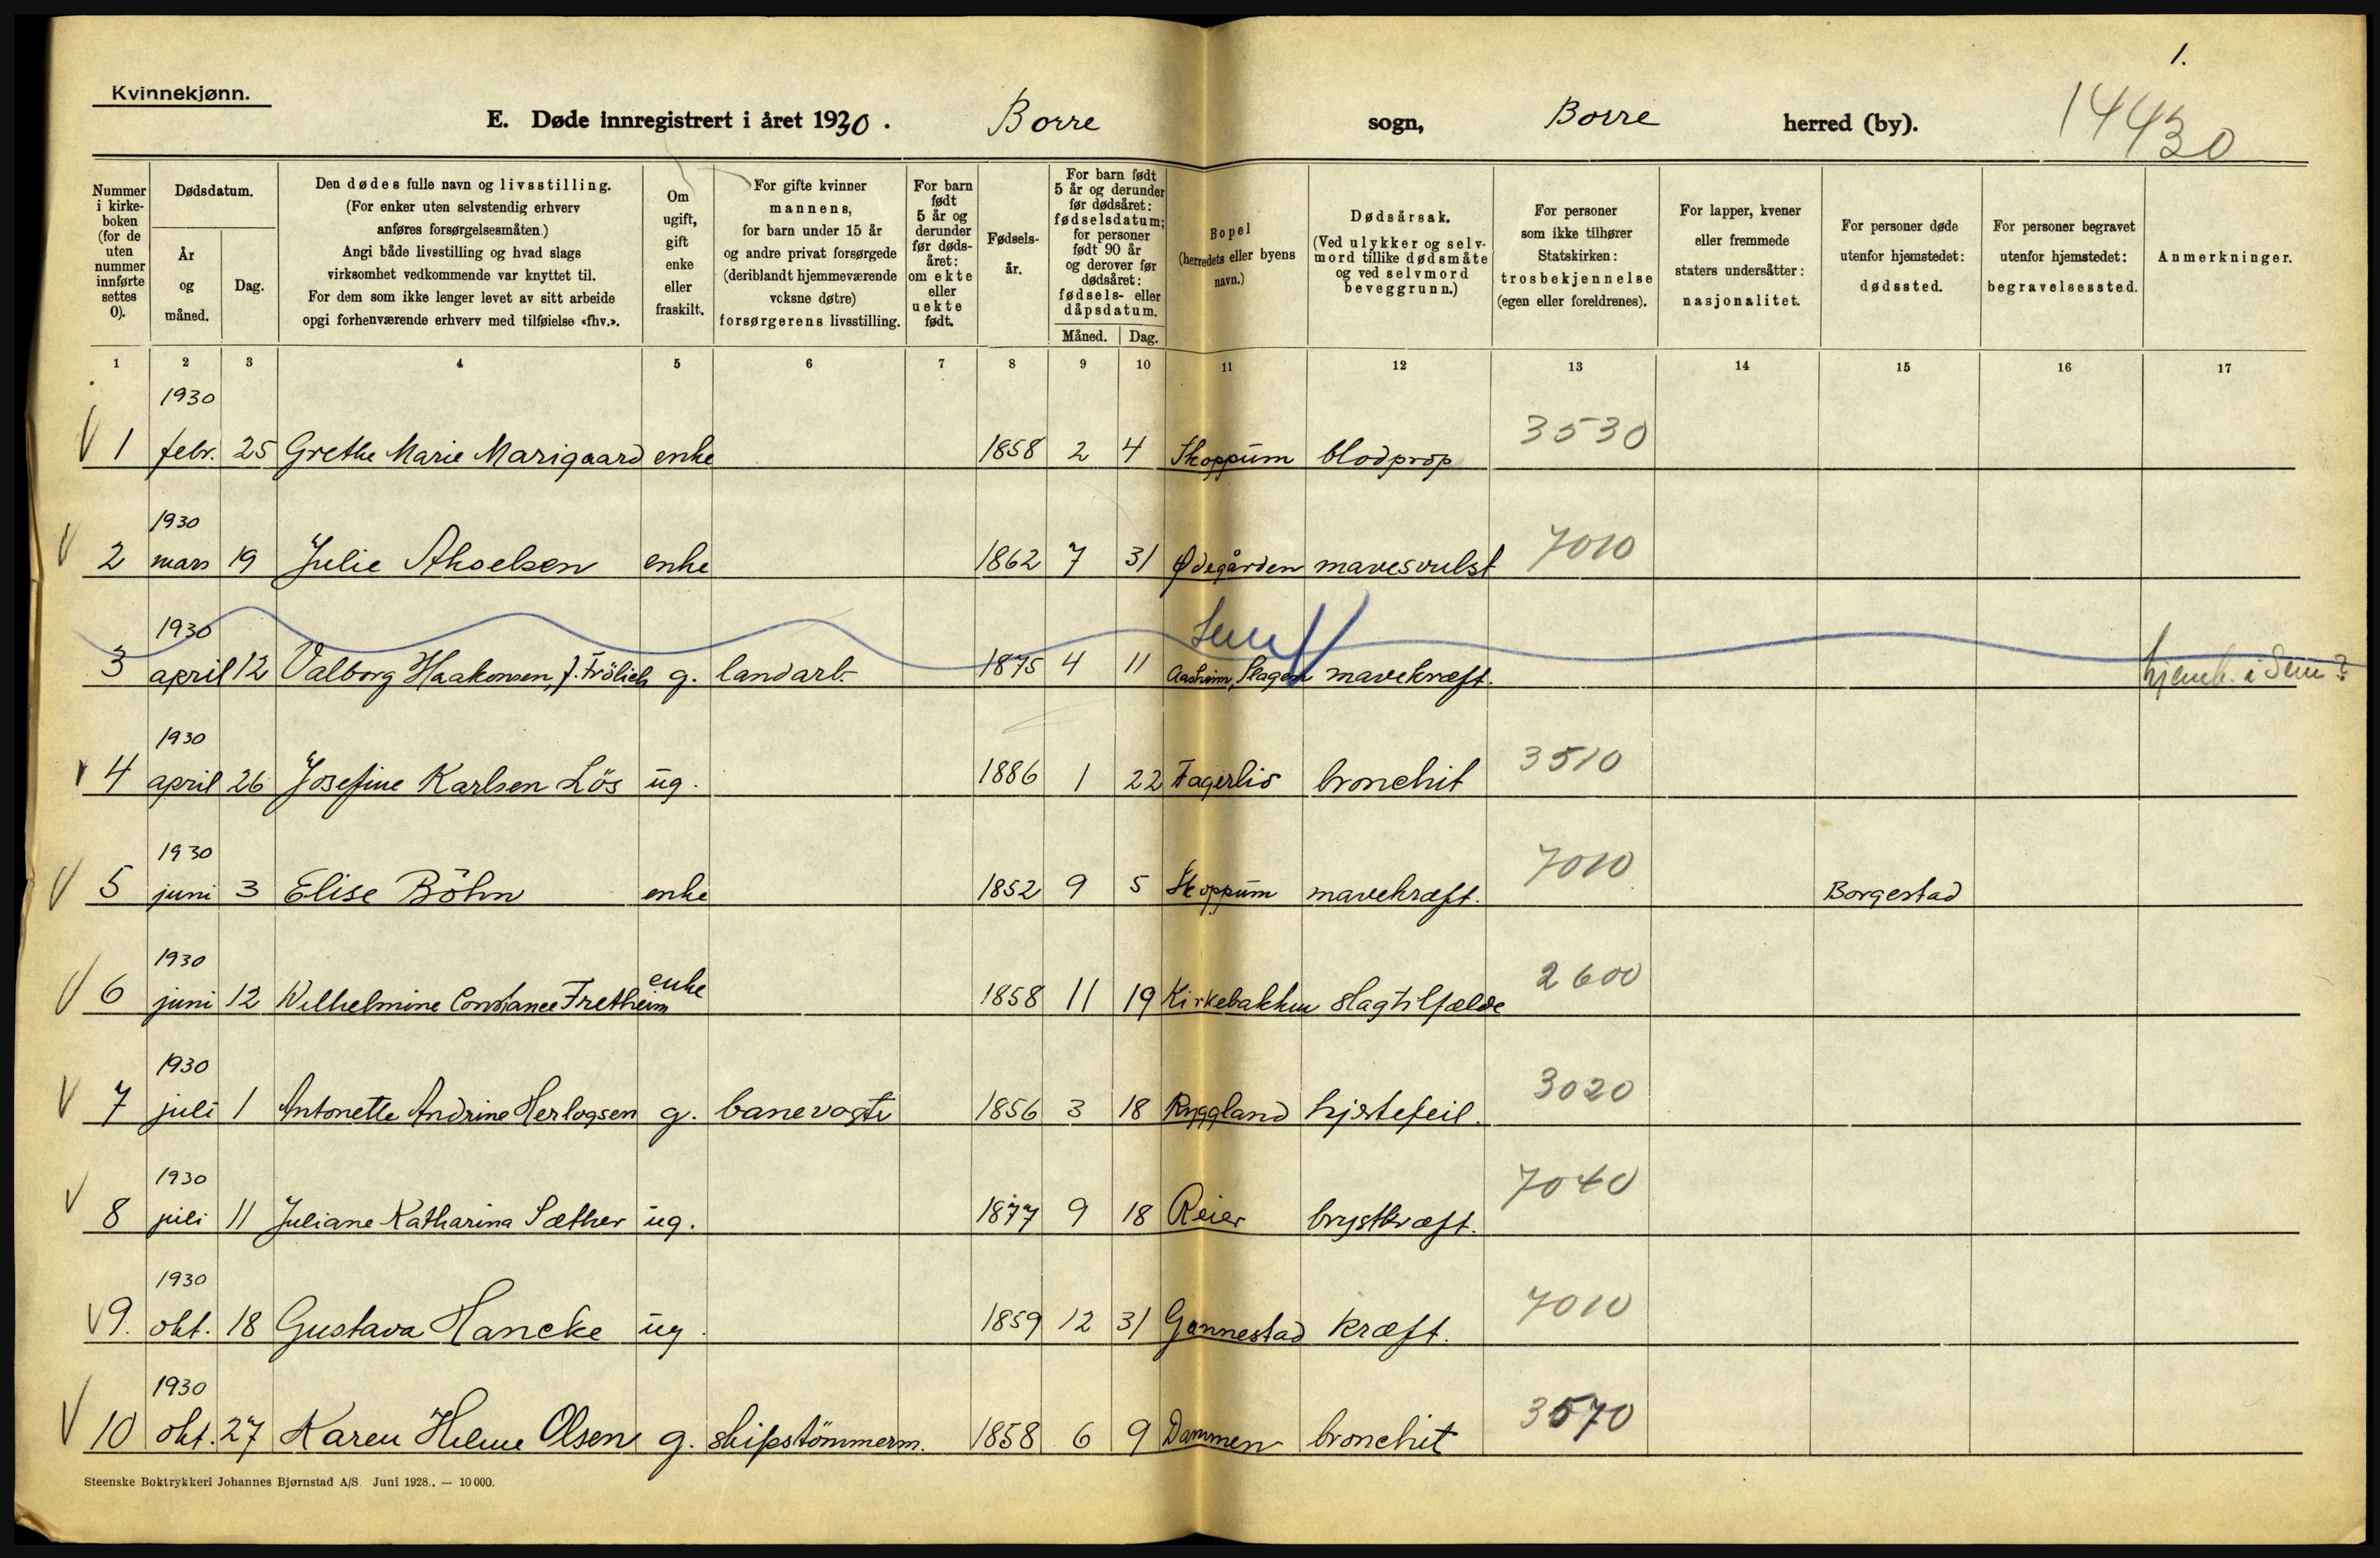 1.
Kvinnekjønn.
E. Døde innregistrert i året 1930. Borre sogn, Borre herred (by). 14430
Nummer i kirkeboken (for de uten nummer innførte settes 0).
Dødsdatum.
År og måned.
Dag.
Den dødes fulle navn og livsstilling.
(For enker uten selvstendig erhverv anføres forsørgelsesmåten.)
Angi både livsstilling og hvad slags virksomhet vedkommende var knyttet til.
For dem som ikke lenger levet av sitt arbeide opgi forhenværende erhverv med tilføielse «fhv.».
Om ugift, gift enke eller fraskilt.
For gifte kvinner mannens, for barn under 15 år og andre privat forsørgede (deriblandt hjemmeværende voksne døtre) forsørgerens livsstilling.
For barn født 5 år og derunder før dødsåret: om ekte eller uekte født.
Fødselsår.
For barn født 5 år og derunder før dødsåret: fødselsdatum; for personer født 90 år og derover før dødsåret: fødsels- eller dåpsdatum.
Måned. Dag.
Bopel (herredets eller byens navn.)
Dødsårsak. (Ved ulykker og selvmord tillike dødsmåte og ved selvmord beveggrunn.)
For personer som ikke tilhører Statskirken: trosbekjennelse (egen eller foreldrenes).
For lapper, kvener eller fremmede staters undersåtter: nasjonalitet.
For personer døde utenfor hjemstedet: dødssted.
For personer begravet utenfor hjemstedet: begravelsessted.
Anmerkninger.
1 2 3 4 5 6 7 8 9 10 11 12 13 14 15 16 17
1930
1 febr. 25 Grethe Marie Marigaard enke 1858 2 4 Skoppum blodprop 3530
1930
2 mars 19 Julie Akselsen enke 1862 7 31 Ødegården mavesvulst 7010
1930 Sem
3 april 12 Valborg Haakonsen, f. Frölich g. landarb. 1875 4 11 Aasheim, Slagen mavekræft. hjemh. i Sem?
1930
4 april 26 Josefine Karlsen Lös ug. 1886 1 22 Fagerlis bronchit 3510
1930
5 juni 3 Elise Böhn enke 1852 9 5 Skoppum mavekræft. 7010 Borgestad
1930
6 juni 12 Wilhelmine Constance Fretheim enke 1858 11 19 Kirkebakken slagtilfælde 2600
1930
7 juli 1 Antonette Andrine Herlogsen g. banevogte 1856 3 18 Ryggland hjertefeil. 3020
1930
8 juli 11 Juliane Katharina Sæther ug. 1877 9 18 Reier brystkræft. 7040
1930
9. okt. 18 Gustava Hancke ug. 1859 12 31 Gannestad kræft. 7010
1930
10 okt. 27 Karen Helene Olsen g. skipstömmerm. 1858 6 9 Dammen bronchit 3570
Steenske Boktrykkeri Johannes Bjørnstad A/S. Juni 1928. — 10 000.